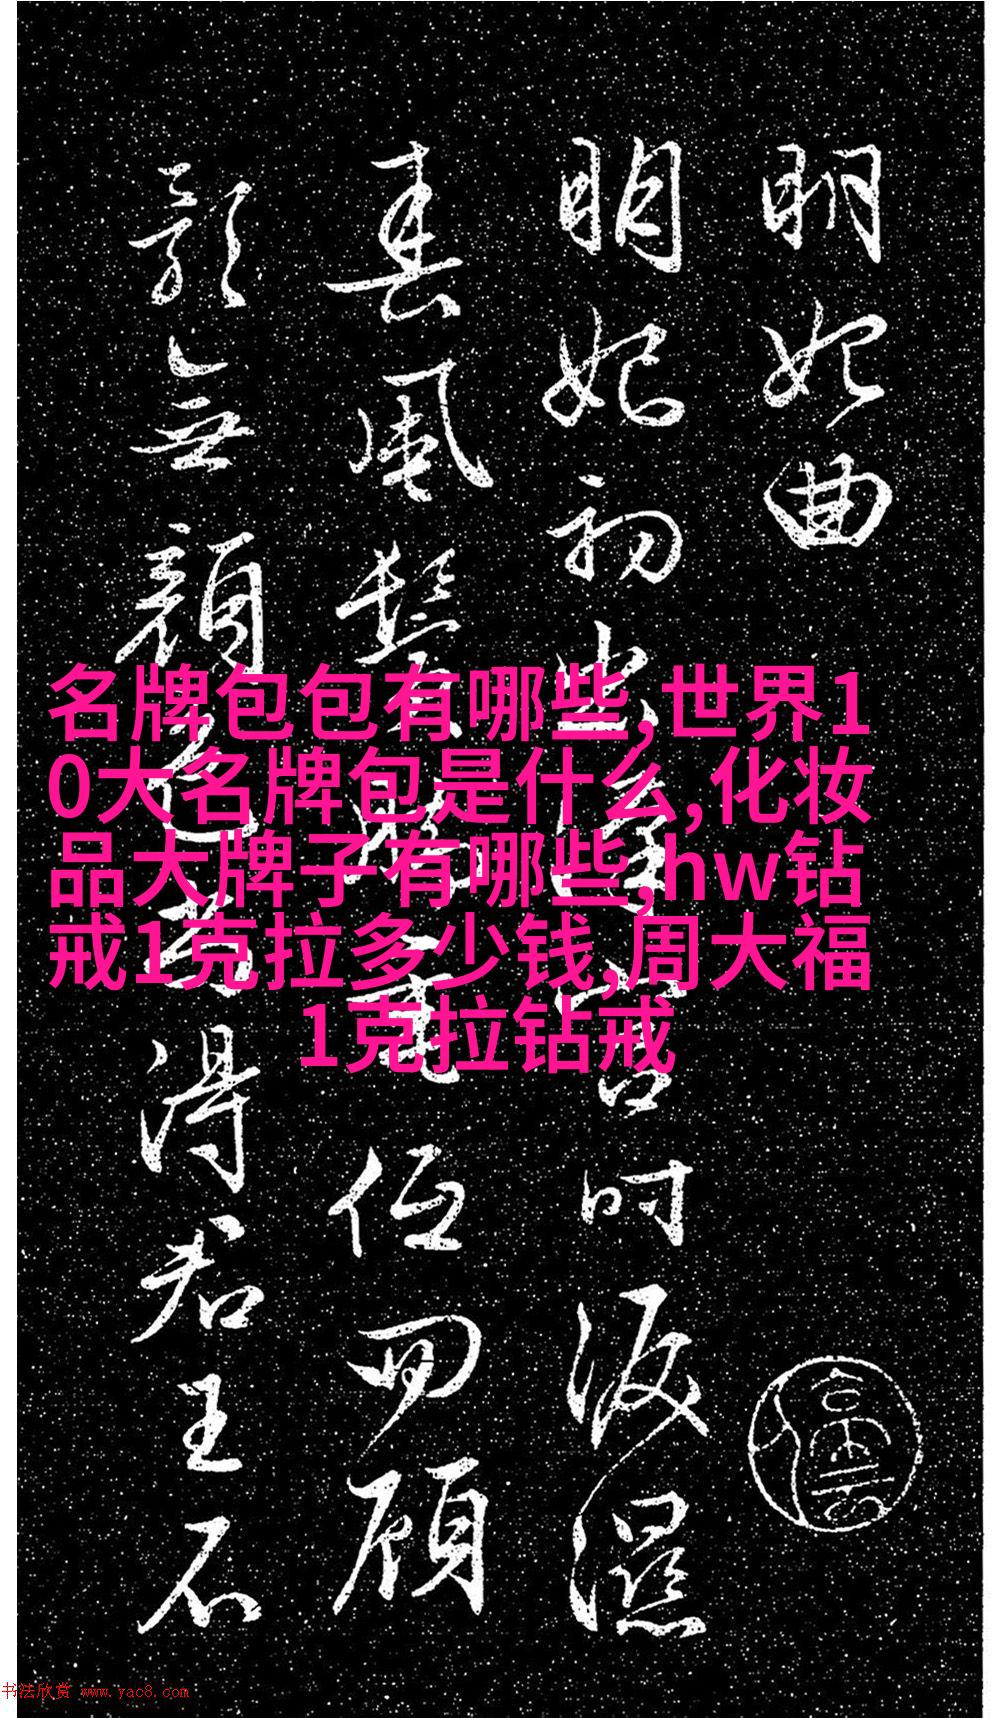 明妃曲
明妃初出漢宮時淚濕
春風鬢脚垂低回顧
影無顏色尚得君王不
名牌包包有哪些,世界1
0大名牌包是什么,化妆
品大牌子有哪些,hw钻
戒1克拉多少钱,周大福
1克拉钻戒
书法欣赏 www.yac8.com